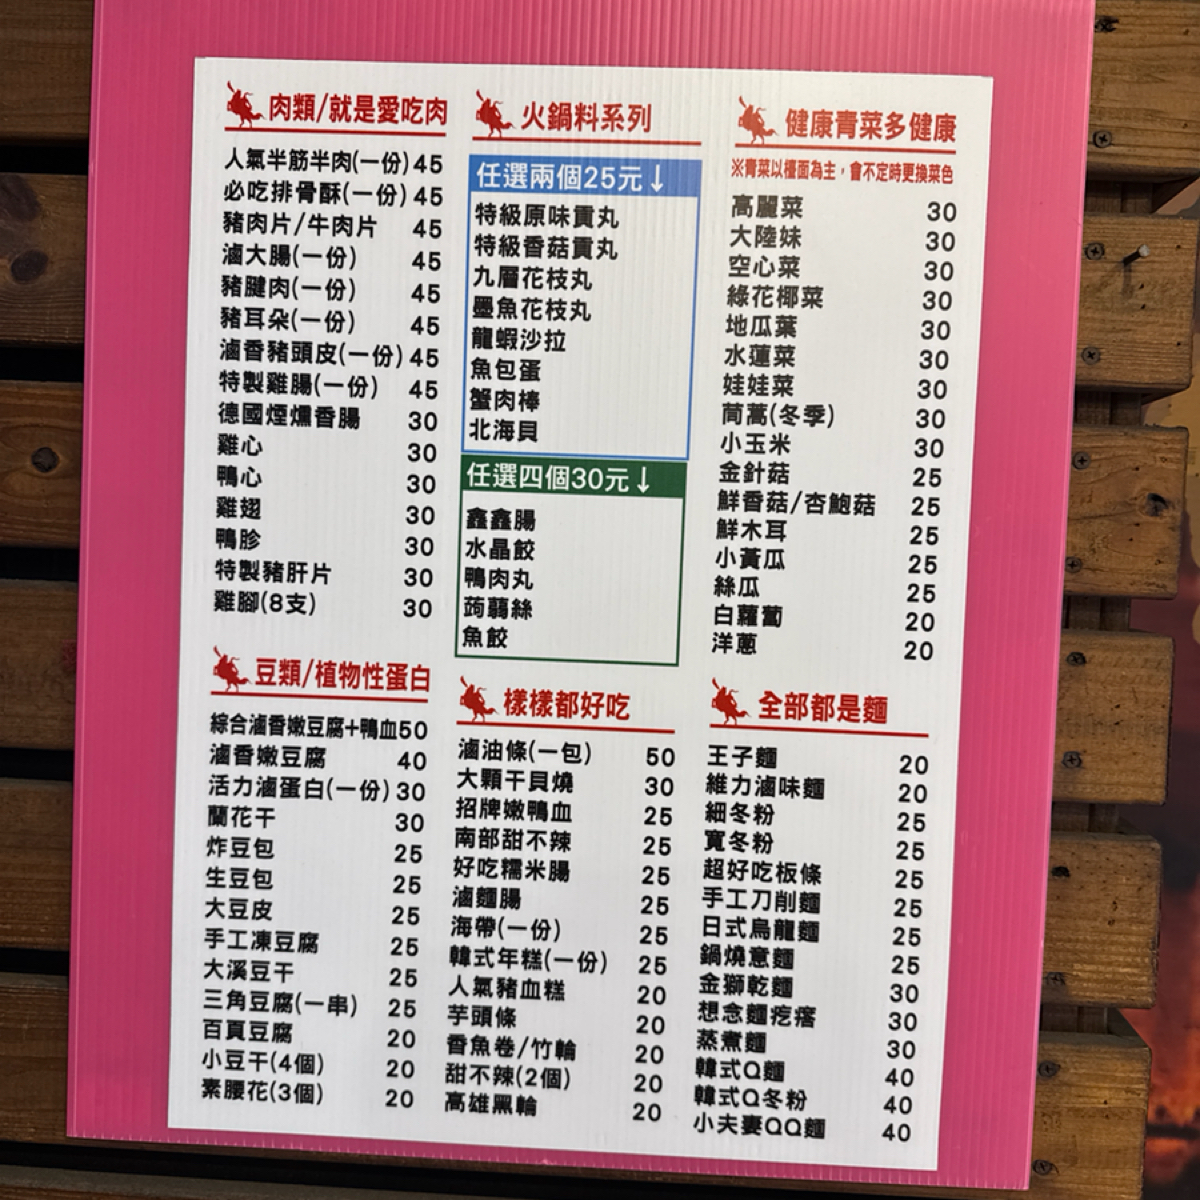 肉類/就是愛吃肉
人氣半筋半肉(一份) 45
必吃排骨酥(一份) 45
豬肉片/牛肉片 45
滷大腸(一份) 45
豬腱肉(一份) 45
豬耳朵(一份) 45
滷香豬頭皮(一份) 45
特製雞腸(一份) 45
德國煙燻香腸 30
雞心 30
鴨心 30
雞翅 30
鴨胗 30
特製豬肝片 30
雞腳(8支) 30
火鍋料系列
任選兩個25元↓
特級原味貢丸
特級香菇貢丸
九層花枝丸
墨魚花枝丸
龍蝦沙拉
魚包蛋
蟹肉棒
北海貝
任選四個30元↓
鑫鑫腸
水晶餃
鴨肉丸
蒟蒻絲
魚餃
健康青菜多健康
※青菜以檯面為主，會不定時更換菜色
高麗菜 30
大陸妹 30
空心菜 30
綠花椰菜 30
地瓜葉 30
水蓮菜 30
娃娃菜 30
茼蒿(冬季) 30
小玉米 30
金針菇 25
鮮香菇/杏鮑菇 25
鮮木耳 25
小黃瓜 25
絲瓜 25
白蘿蔔 20
洋蔥 20
豆類/植物性蛋白
綜合滷香嫩豆腐+鴨血50
滷香嫩豆腐 40
活力滷蛋白(一份) 30
蘭花干 30
炸豆包 25
生豆包 25
大豆皮 25
手工凍豆腐 25
大溪豆干 25
三角豆腐(一串) 25
百頁豆腐 20
小豆干(4個) 20
素腰花(3個) 20
樣樣都好吃
滷油條(一包) 50
大顆干貝燒 30
招牌嫩鴨血 25
南部甜不辣 25
好吃糯米腸 25
滷麵腸 25
海帶(一份) 25
韓式年糕(一份) 25
人氣豬血糕 20
芋頭條 20
香魚卷/竹輪 20
甜不辣(2個) 20
高雄黑輪 20
全部都是麵
王子麵 20
維力滷味麵 20
細冬粉 25
寬冬粉 25
超好吃板條 25
手工刀削麵 25
日式烏龍麵 25
鍋燒意麵 25
金獅乾麵 30
想念麵疙瘩 30
蒸煮麵 30
韓式Q麵 40
韓式Q冬粉 40
小夫妻QQ麵 40